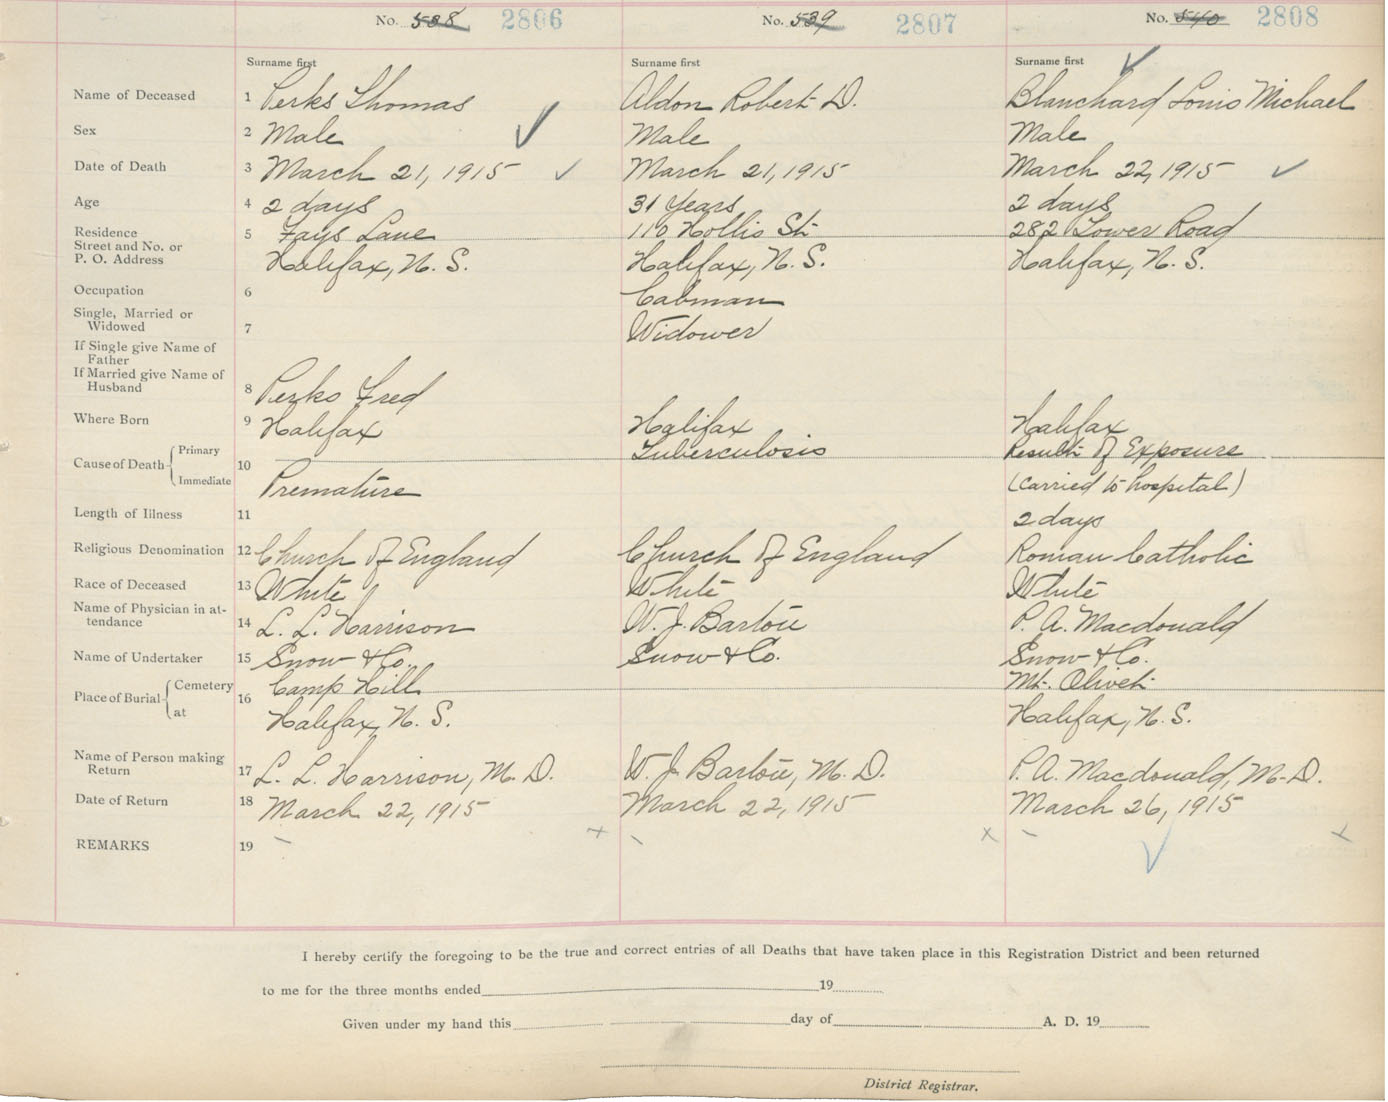 No. 538 2806 No. 539 2807 No. 540 2808
Surname first Surname first Surname first
Name of Deceased 1 Perks Thomas Aldon Robert D. Blanchard Louis Michael
Sex 2 Male Male Male
Date of Death 3 March 21, 1915 March 21, 1915 March 22, 1915
Age 4 2 days 31 Years 2 days
Residence 5 Fays Lane 110 Hollis St. 282 Lower Road
Street and No. or
P. O. Address Halifax, N. S. Halifax, N. S. Halifax, N. S.
Occupation 6 Cabman
Single, Married or
Widowed 7 Widower
If Single give Name of
Father
If Married give Name of
Husband 8 Perks Fred
Where Born 9 Halifax Halifax Halifax
Cause of Death Primary 10 Tuberculosis Result of Exposure
Immediate Premature (carried to hospital)
Length of Illness 11 2 days
Religious Denomination 12 Church of England Church of England Roman Catholic
Race of Deceased 13 White White White
Name of Physician in at-
tendance 14 L. L. Harrison W. J. P. A. Macdonald
Name of Undertaker 15 Snow & Co. Snow & Co. Snow & Co.
Place of Burial Cemetery 16 Camp Hill Mt. Olivet
at Halifax, N. S. Halifax, N. S.
Name of Person making
Return 17 L. L. Harrison, M. D. W. J. M. D. P. A. Macdonald, M. D.
Date of Return 18 March 22, 1915 March 22, 1915 March 26, 1915
REMARKS 19
I hereby certify the foregoing to be the true and correct entries of all Deaths that have taken place in this Registration District and been returned
to me for the three months ended 19
Given under my hand this day of A. D. 19
District Registrar.